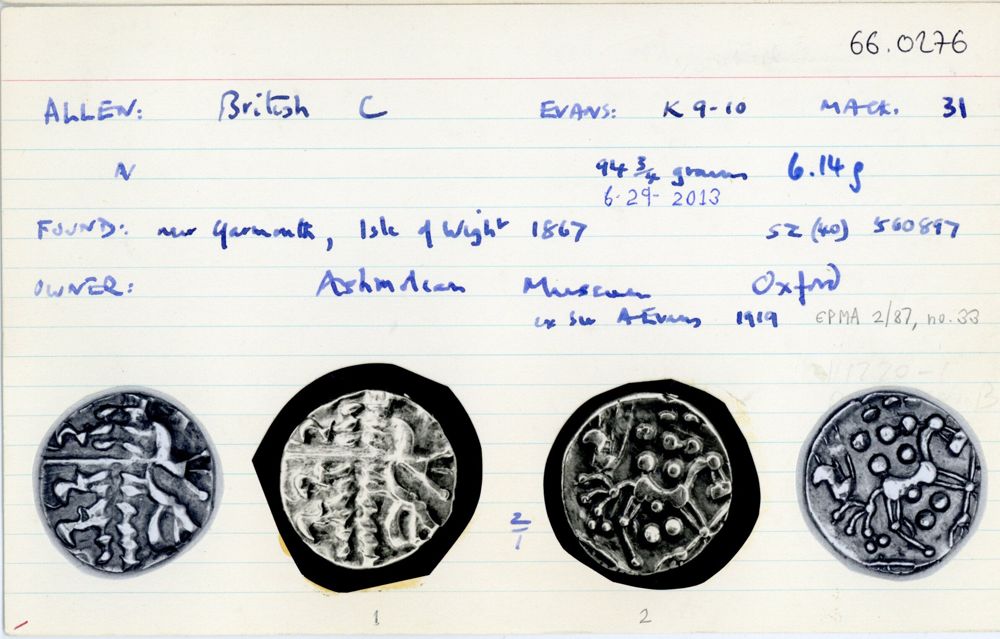 66.0276
ALLEN: British C EVANS: K 9-10 MACK. 31
N 94 3/4 grains 6.14g
6.29 2013
FOUND: near Yarmouth, Isle of Wight 1867 SZ (40) 560897
OWNER: Ashmolean Museum Oxford
ex Sir A Evans 1919 EPMA 2/87, no. 33
2/1
1 2